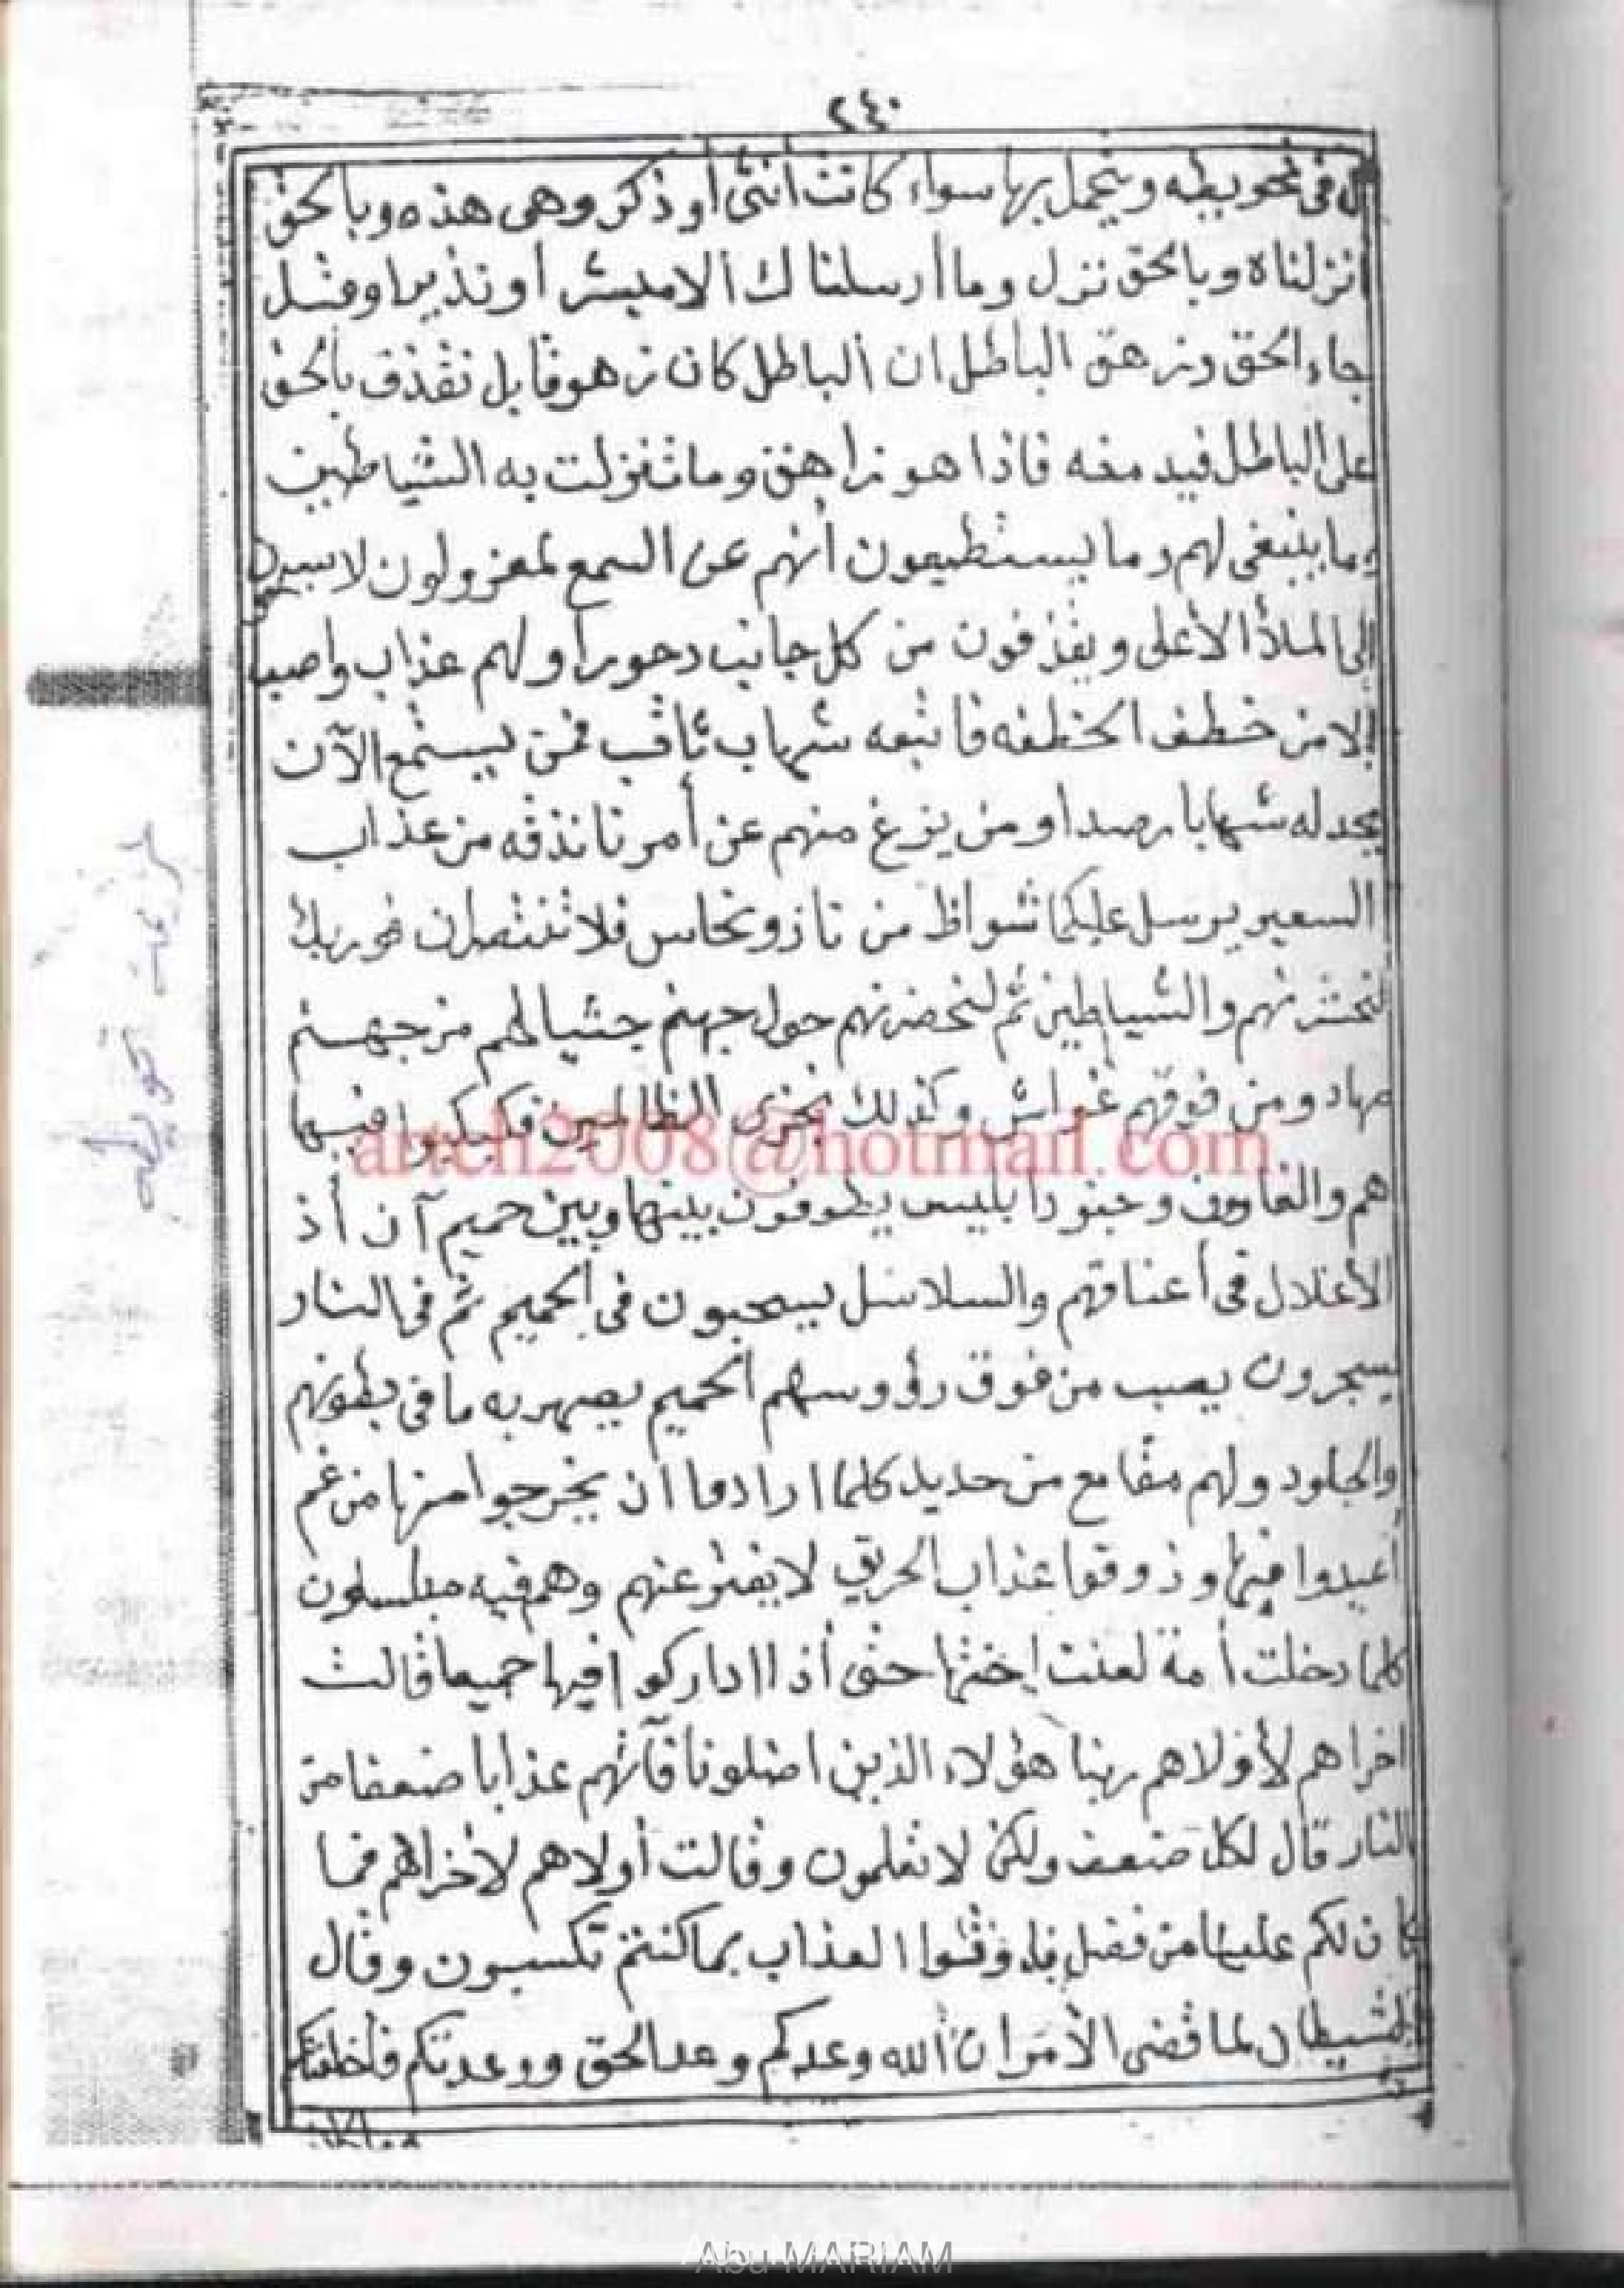 ٢٤٠
في تحويطه ويحمل بها سواء كانت أنثى أو ذكر وهي هذه وبالحق
انزلناه وبالحق نزل وما أرسلناك الا مبشرا ونذيرا وقل
جاء الحق وزهق الباطل ان الباطل كان زهوقا بل نقذف بالحق
على الباطل فيدمغه فاذا هو زاهق وما تنزلت به الشياطين
وما ينبغي لهم وما يستطيعون أنهم عن السمع لمعزولون لا يسمعون
الى الملأ الأعلى ويقذفون من كل جانب دحورا ولهم عذاب واصب
الا من خطف الخطفه فاتبعه شهاب ثاقب فمن يستمع الآن
يجد له شهابا رصدا ومن يزغ منهم عن أمرنا نذقه من عذاب
السعير يرسل عليكما شواظ من نار ونحاس فلا تنتصران فوربك
لنحشرنهم والشياطين ثم لنحضرنهم حول جهنم جثيا لهم من جهنم
مهاد ومن فوقهم غواش وكذلك نجزي الظالمين فكبكبوا فيها
هم والغاوون وجنود ابليس يطوفون بينها وبين حميم آن أذ
الأغلال في أعناقهم والسلاسل يسحبون في الحميم ثم في النار
يسجرون يصب من فوق رؤوسهم الحميم يصهر به ما في بطونهم
والجلود ولهم مقامع من حديد كلما ارادوا ان يخرجوا منها من غم
أعيدوا فيها وذوقوا عذاب الحريق لا يفتر عنهم وهم فيه مبلسون
كلما دخلت أمة لعنت اختها حتى أذا اداركوا فيها جميعا قالت
اخراهم لأولاهم ربنا هؤلاء الذين اضلونا فآتهم عذابا ضعفا من
النار قال لكل ضعف ولكن لا تعلمون وقالت أولاهم لأخراهم فما
كان لكم علينا من فضل فذوقوا العذاب بما كنتم تكسبون وقال
الشيطان لما قضى الأمر ان الله وعدكم وعد الحق ووعدتكم فأخلفتكم
arteh2008@hotmail.com
Abu MARIAM